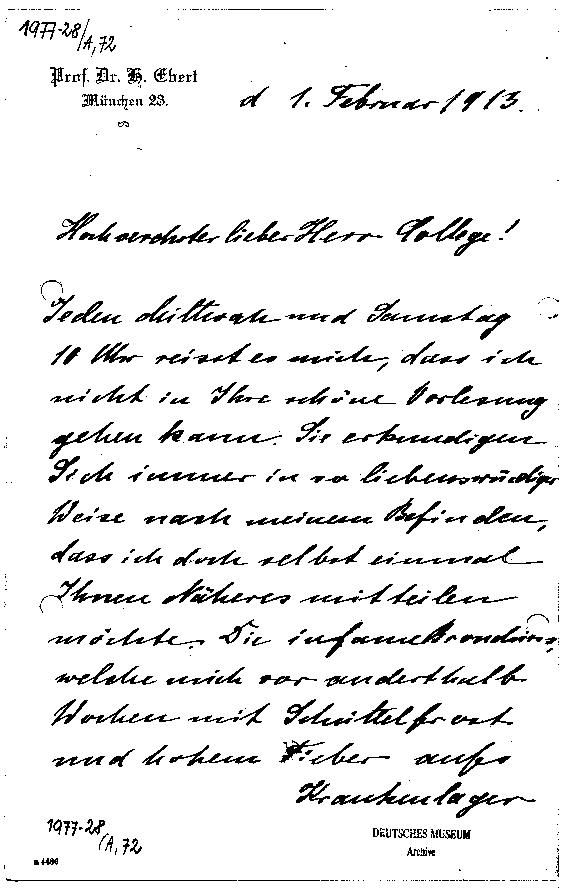 1977-28/A,72
Prof. Dr. H. Ebert
München 23.
d 1. Februar 1913.
Hochverehrter lieber Herr College!
Jeden Mittwoch und Samstag
10 Uhr reisst es mich, dass ich
nicht in Ihre schöne Vorlesung
gehen kann. Sie erkundigen
Sich immer in so liebenswürdiger
Weise nach meinem Befinden,
dass ich doch selbst einmal
Ihnen Näheres mitteilen
möchte. Die infame
welche mich vor anderthalb
Wochen mit Schüttelfrost
und hohem Fieber aufs
Krankenlager
1977-28/A,72
DEUTSCHES MUSEUM
Archive